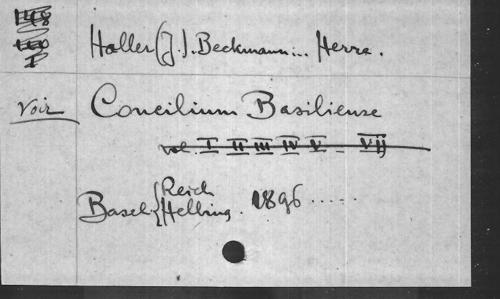 148
I
Haller (J.). Beckmann... Herre.
Voir Concilium Basiliense
vol. I II III IV V - VII
Basel { Reich
Helbing. 1896 .....